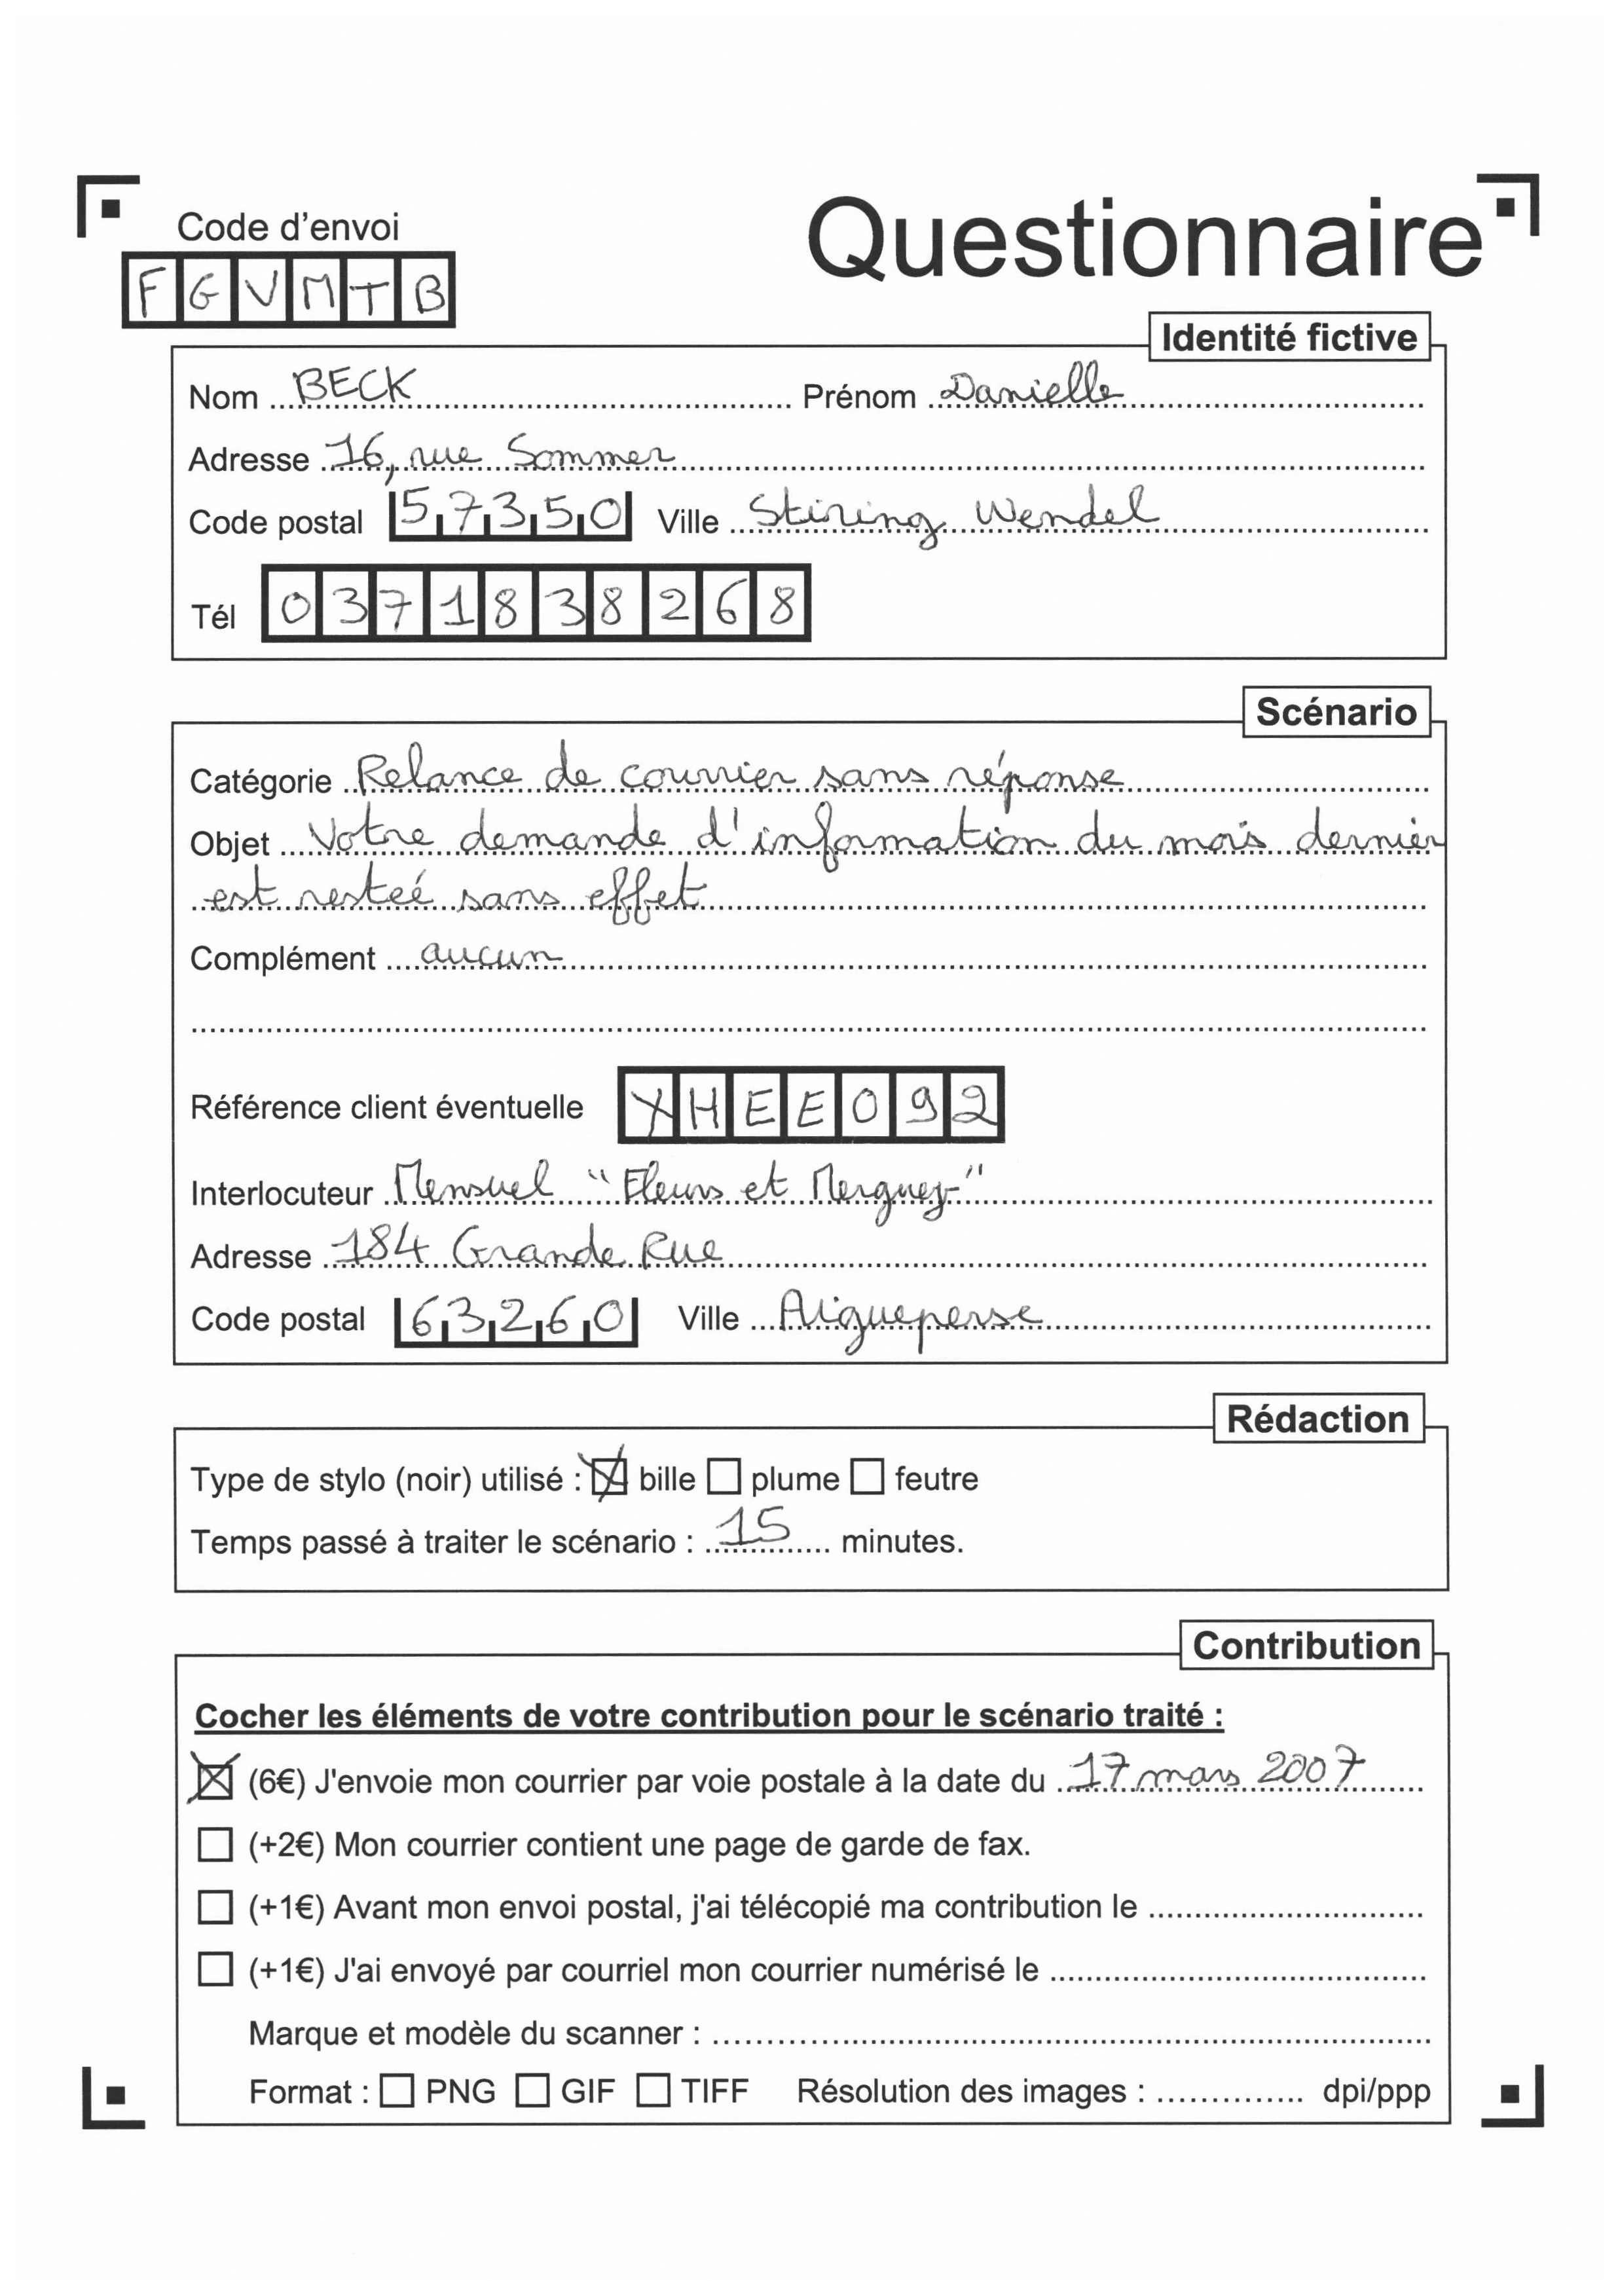 Code d'envoi
Questionnaire
FGVMTB
Identité fictive
Nom BECK Prénom Danielle
Adresse 16, rue Sommer
Code postal 57350 Ville Stiring Wendel
Tél 0371838268
Scénario
Catégorie Relance de courrier sans réponse
Objet Votre demande d'information du mois dernier
est resteé sans effet
Complément aucun
Référence client éventuelle XHEE092
Interlocuteur Mensuel "Fleurs et Merguez"
Adresse 184 Grande Rue
Code postal 63260 Ville Aigueperse
Rédaction
Type de stylo (noir) utilisé : bille plume feutre
Temps passé à traiter le scénario : 15 minutes.
Contribution
Cocher les éléments de votre contribution pour le scénario traité :
(6€) J'envoie mon courrier par voie postale à la date du 17 mars 2007
(+2€) Mon courrier contient une page de garde de fax.
(+1€) Avant mon envoi postal, j'ai télécopié ma contribution le
(+1€) J'ai envoyé par courriel mon courrier numérisé le
Marque et modèle du scanner :
Format : PNG GIF TIFF Résolution des images : dpi/ppp